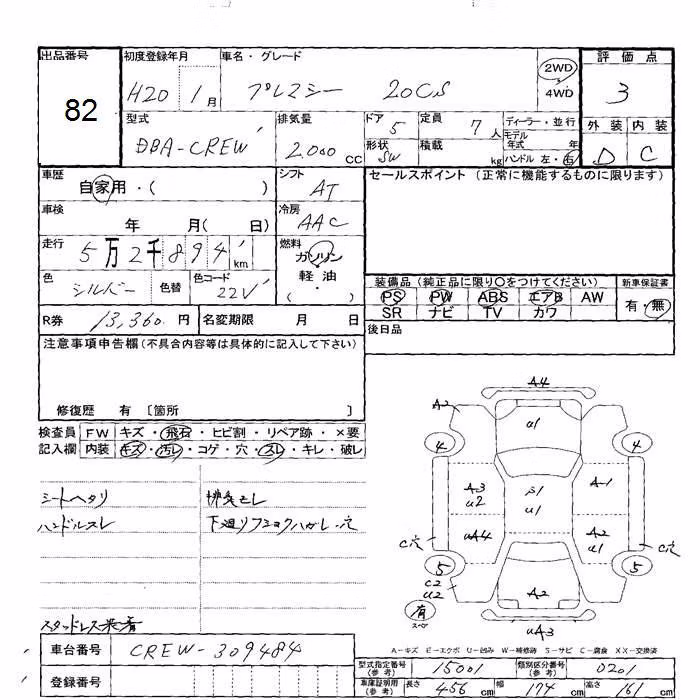 出品番号
82
初度登録年月
H20 1月
車名・グレード
プレマシー 20CS
2WD
4WD
評価点
3
型式
DBA-CREW
排気量
2000 CC
ドア
5
形状
SW
定員
7人
積載
kg
ディーラー・並行
モデル
年式 年
ハンドル 左・右
外装 内装
D C
車歴
自家用・( )
シフト
AT
セールスポイント (正常に機能するものに限ります)
車検
年 月( 日)
冷房
AAC
走行
5万2千894 km
燃料
ガソリン
軽・油
( ・ )
色
シルバー
色替
色コード
22V
装備品(純正品に限り○をつけてください)
PS PW ABS エアB AW
SR ナビ TV カワ
新車保証書
有・無
R券 13,360円
名変期限 月 日
後日品
注意事項申告欄(不具合内容等は具体的に記入して下さい)
修復歴 有〔箇所 〕
検査員 FW キズ・飛石・ヒビ割・リペア跡・×要
記入欄 内装 キズ・汚レ・コゲ・穴・スレ・キレ・破レ
シートヘタリ
ハンドルスレ
スタッドレス装着
排気モレ
A4
A2
U1
4
4
A3
U2
A-1
S1
U1
UA4
A2
U1
C穴
C穴
5
5
C2
U2
A2
有
スペア
UA3
A-キズ E-エクボ U-凹み W-補修跡 S-サビ C-腐食 XX-交換済
車台番号 CREW-309484
登録番号
型式指定番号
(参考)
15001
類別区分番号
(参考)
0201
車庫証明用
(参考)
長さ 456 cm 幅 174 cm 高さ 161 cm